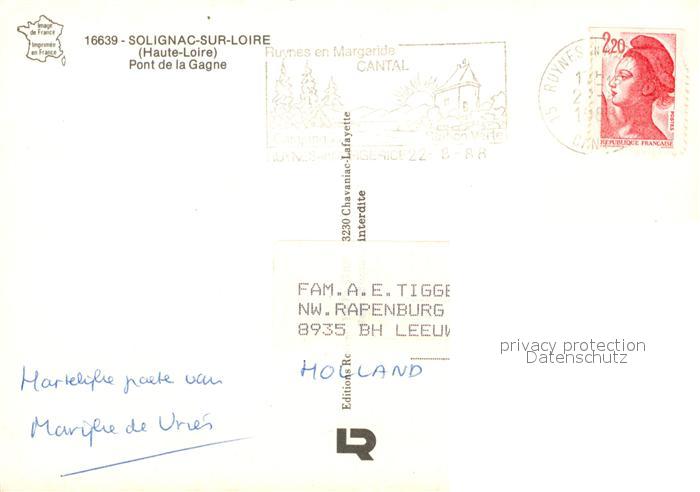 Image
de France
Imprimée
en France
16639 - SOLIGNAC-SUR-LOIRE
(Haute-Loire)
Pont de la Gagne
Ruynes en Margeride
CANTAL
22-8-88
15 RUYNES
2,20
POSTES
REPUBLIQUE FRANÇAISE
3230 Chavaniac-Lafayette
interdite
Editions
FAM.A.E.TIGGE
NW.RAPENBURG
8935 BH LEEUW
HOLLAND
privacy protection
Datenschutz
Hartelijke groete van
Marijke de Vries
LR